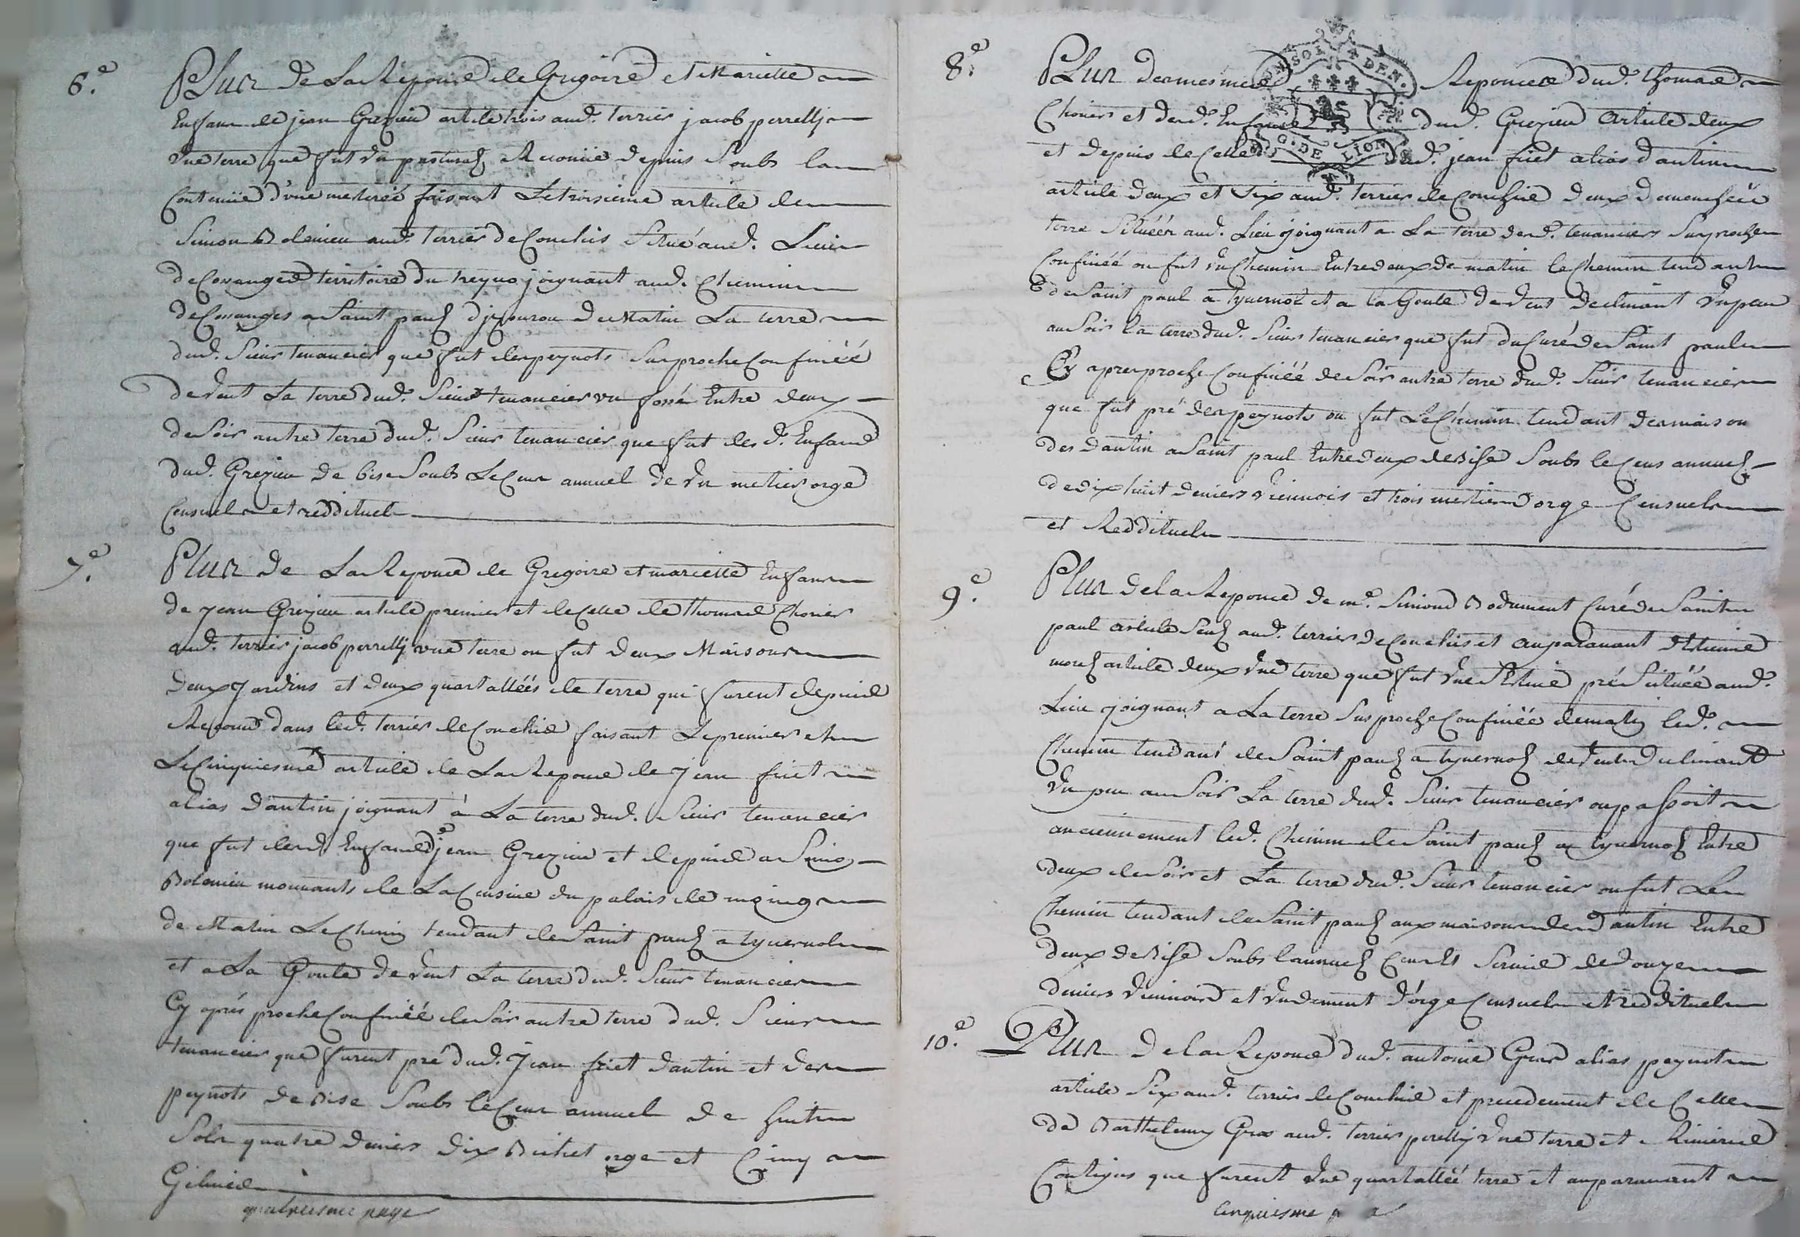 6.e Plus de La Reponce de Gregoire et Mariette
Enfans de jean Grezieu article trois aud. terrier jacob perrelly
une terre que fut un pasturel Reconnue depuis soubs la
Contenüe d'une meterée faisant Le troisieme article de
Simon Bolenieu aud. terrier de Conchis Situé aud. Lieu
de Covanges territoire du treyno joignant aud. Chemin
de Covanges a Saint paul d'jzourou de Matin La terre
dud. Sieur tenancier que fut des peynots Susproche Confinéé
de Vent La terre dud. Sieur tenancier un fossé Entre deux
de Soir autre terre dud. Sieur tenancier que fut des d. Enfans
dud. Grezieu de bise Soubs Le Cens annuel de un metier orge
Censuel et reddituel
7.e Plus de La Reponce de Gregoire et mariette Enfans
de jean Grezieu article premier et de Celle de Thomas Chovier
aud. terrier jacob perrelly une terre ou fut deux Maisons
deux jardins et deux quartallées de terre qui furent depuis
Reponds dans led. terrier de Conchis faisant Le premier et
Le Cinquiesme article de La Reponce de jean friet
alias dantin joignant à La terre dud. Sieur tenancier
que fut desd. Enfans de jean Grezieu et depuis a Simo
Bolenieu mouvants de La Cusine du palais de moing
de Matin Le Chemin tendant de Saint paul a tyvernol
et a La Goute de Vent La terre dud. Sieur tenancier
Cy aprés proche Confinéé de Soir autre terre dud. Sieur
tenancier que furent pré dud. Jean friet dantin et des
peynots de Bise Soubs le Cens annuel de huit
Sols quatre deniers dix Bichet orge et Cinq
Gelines
quatriesme page
8.e Plus de mesme Reponce dud. thomas
Chovier et desd. Enfans dud. Grezieu Article deux
et depuis de Celle dud. jean friet alias dantin
article deux et Six aud. terrier de Conchis deux
terre Situéés aud. Lieu joignant a La terre dud. tenancier Susproche
Confinéé ou fut un Chemin Entredeux de matin le Chemin tendant
de Saint paul a tyvernol et a la Goute de Vent declinant un peu
au Soir la terre dud. Sieur tenancier que fut du Curé de Saint paul
Cy apres proche Confinéé de Soir autre terre dud. Sieur tenancier
que fut pré des peynots ou fut Le Chemin tendant des maison
des dantin a Saint paul Entre deux de Bise Soubs le Cens annuel
de dix huit deniers Viennois et trois metiers d'orge Censuel
et Reddituel
9.e Plus de la Reponce de m.e Simond Bodument Curé de Saint
paul article Seul aud. terrier de Conchis et auparavant d'Etienne
morel article deux une terre que fut pré Situéé aud.
Lieu joignant a La terre Susproche Confinéé de matin led.
Chemin tendant de Saint paul a tyvernol de Vent declinant
un peu au Soir La terre dud. Sieur tenancier ou passoit
anciennement led. Chemin de Saint paul a tyvernol Entre
deux de Soir et La terre dud. Sieur tenancier ou fut Le
Chemin tendant de Saint paul aux maisons des dantin Entre
deux de Bise Soubs l'annuel Cens et Servis de douze
deniers Viennois et d'orge Censuel et reddituel
10.e Plus de la Reponce dud. antoine Gros alias peynot
article Six aud. terrier de Conchis et precedement de Celle
de Barthelemy Gros aud. terrier perelly une terre et
Contigus que furent une quartallée terre et auparavant
Cinquiesme